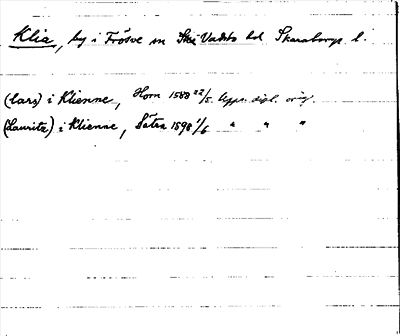 Klia, by i Frösve sn Vadsbo hd Skaraborgs l.
(Lars) i Klienne, Horn 1588 22/5 Upps. dipl. orig.
(Lauritz) i Klienne, Sätra 1598 1/6 " " "